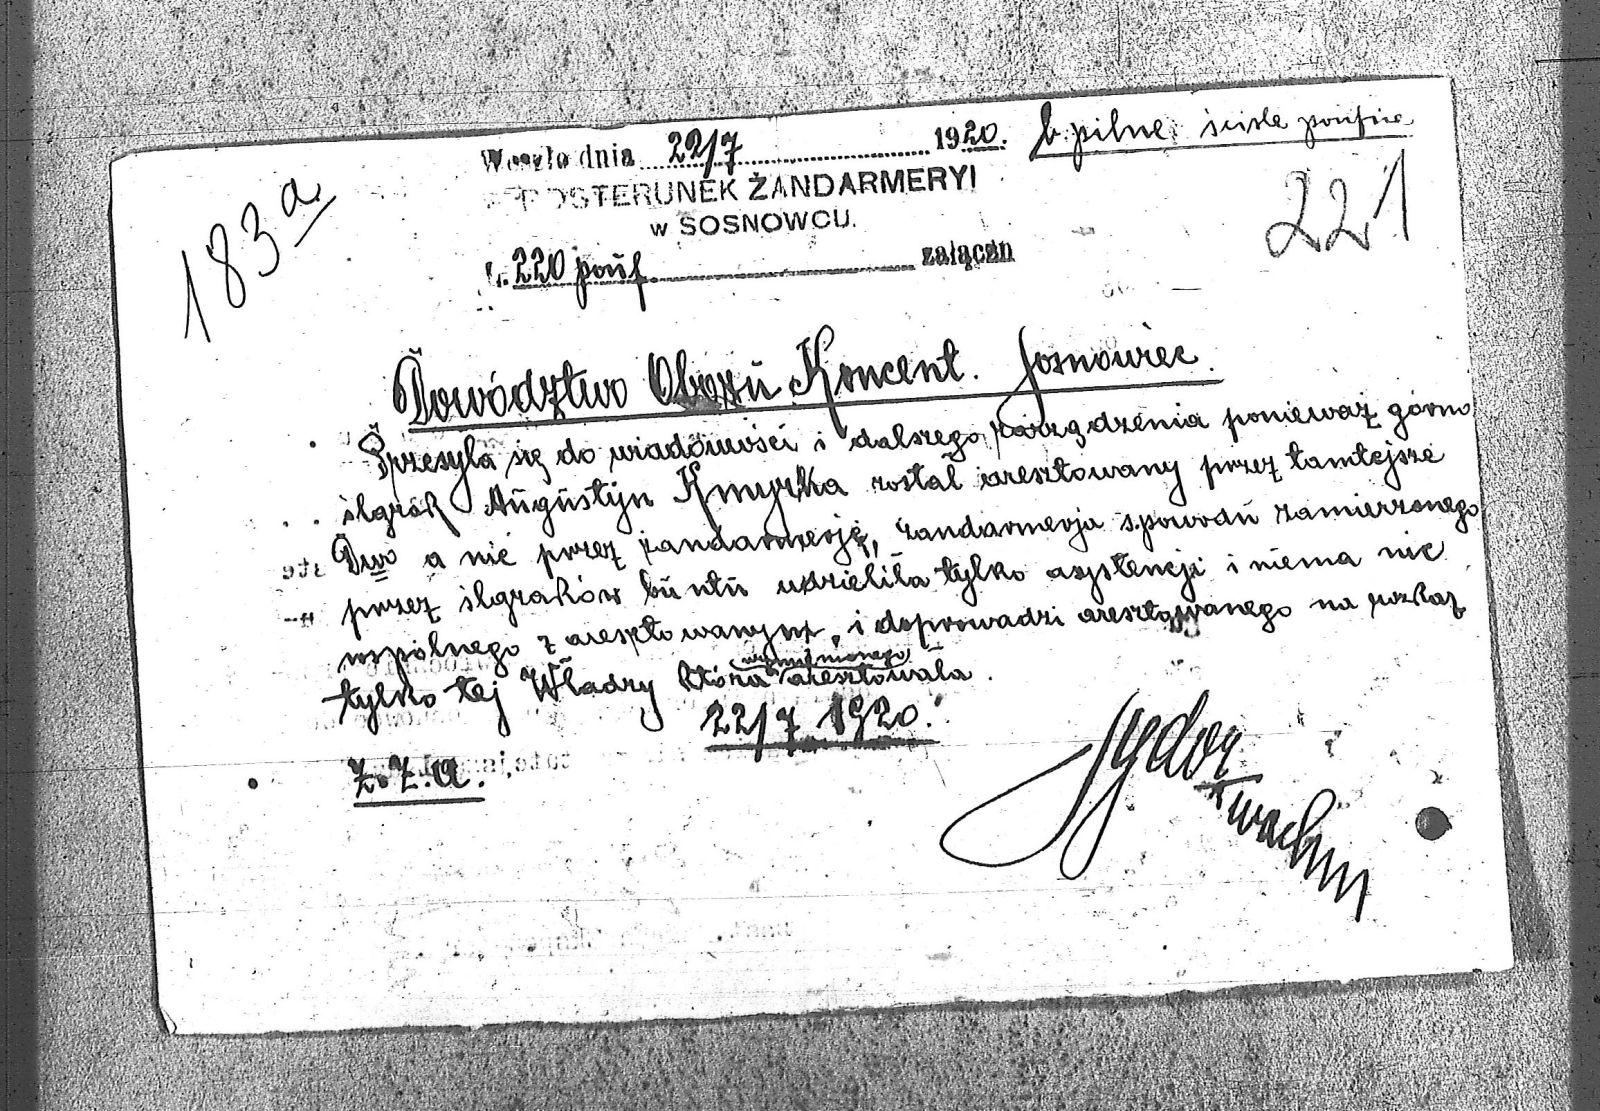 Weszło dnia 22/7 1920. b. pilne ściśle poufne
POSTERUNEK ŻANDARMERYI
w SOSNOWCU.
L. 220 pouf. załączn
183a
221
Dowództwo Obozu Koncent. Sosnowiec.
Przesyła się do wiadomości i dalszego zarządzenia ponieważ górno
ślązak Augustyn Kmyrka został aresztowany przez tamtejsze
Dwo a nie przez żandarmerję, żandarmerja spowodu zamierzonego
przez ślązaków buntu udzieliła tylko asystencji i niema nic
wspólnego z aresztowanym, i doprowadzi aresztowanego na rozkaz
tylko tej Władzy która wymienionego aresztowała.
22/7 1920.
Z.Z.a.
wachm